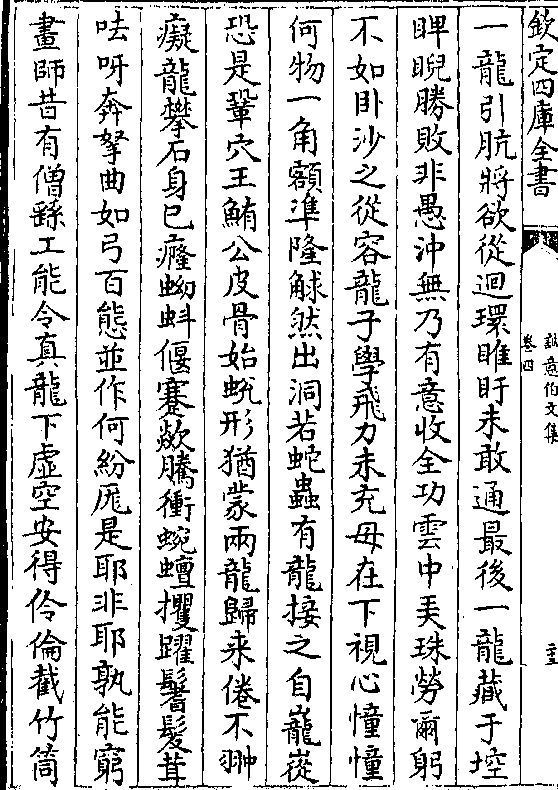 欽定四庫全書
誠意伯文集
卷四
一龍引肮將欲從迴環睢盱未敢通最後一龍藏于埪
睥睨勝敗非愚沖無乃有意收全功雲中美珠勞爾躬
不如卧沙之從容龍子學飛力未充母在下視心憧憧
何物一角額準隆觩然出洞若蛇蟲有龍接之自巃嵸
恐是鞏穴王鮪公皮骨始蛻形猶蒙兩龍歸来倦不翀
癡龍攀石身已癃蚴蚪偃蹇歘騰衝蜿蟺攫躍鬐髮茸
呿呀奔拏曲如弓百態並作何紛厖是耶非耶孰能窮
畫師昔有僧繇工能令真龍下虚空安得伶倫截竹筒